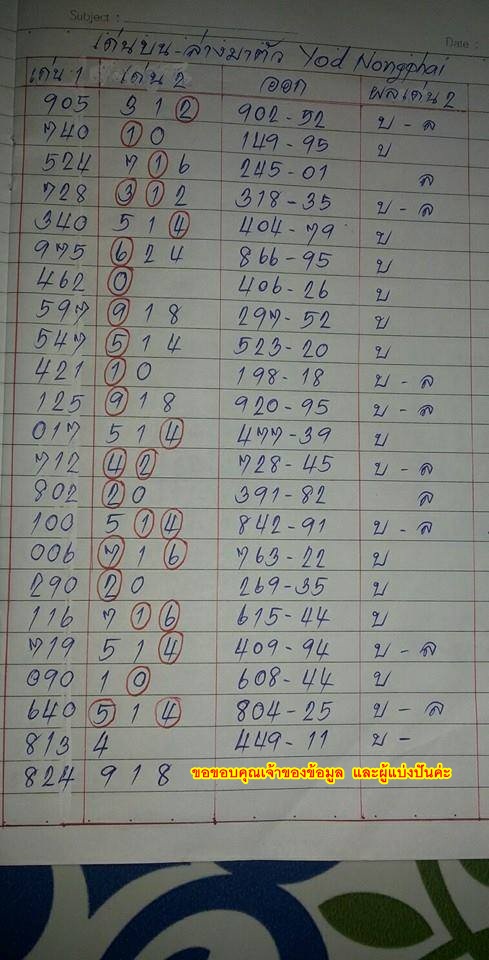 Subject :
Date :
เด่นบน-ล่างมาตัว Yod Nongphai
เด่น 1 เด่น 2 ออก ผลเด่น 2
905 312 902-52 บ - ล
740 10 149-95 บ
524 716 245-01 ล
728 312 318-35 บ - ล
340 514 404-79 บ
975 624 866-95 บ
462 0 406-26 บ
597 918 297-52 บ
547 514 523-20 บ
421 10 198-18 บ - ล
125 918 920-95 บ - ล
017 514 477-39 บ
712 42 728-45 บ - ล
802 20 391-82 ล
100 514 842-91 บ - ล
006 716 763-22 บ
290 20 269-35 บ
116 716 615-44 บ
719 514 409-94 บ - ล
090 10 608-44 บ
640 514 804-25 บ - ล
813 4 449-11 บ -
824 918 ขอขอบคุณเจ้าของข้อมูล และผู้แบ่งปันค่ะ